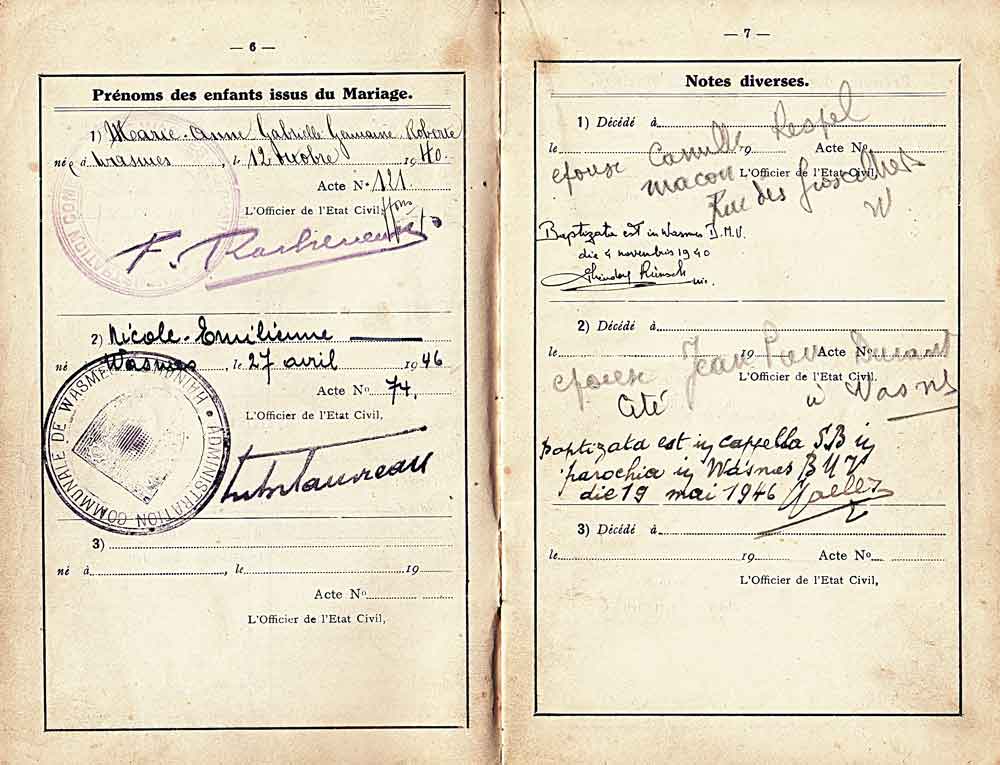 — 6 —
Prénoms des enfants issus du Mariage.
1) Marie-Anne Gabrielle Germaine Roberte
née à Wasmes, le 12 octobre 1940.
Acte No 121
L'Officier de l'Etat Civil,
2) Nicole-Emilienne
né Wasmes, le 27 avril 1946
Acte No 74.
L'Officier de l'Etat Civil,
ADMINISTRATION COMMUNALE DE WASMES
3)
né à, le 19
Acte No
L'Officier de l'Etat Civil,
— 7 —
Notes diverses.
1) Décédé à
le 19 Acte No
L'Officier de l'Etat Civil,
épouse Camille Respel
maçon
Rue des
W
Baptizata est in Wasmes B.M.V.
die 4 novembris 1940
2) Décédé à
le 19 Acte No
L'Officier de l'Etat Civil,
épouse Jean Paul Durant
Cité à Wasmes
Baptizata est in cappella SB in
parochia in Wasmes B M V
die 19 mai 1946
3) Décédé à
le 19 Acte No
L'Officier de l'Etat Civil,